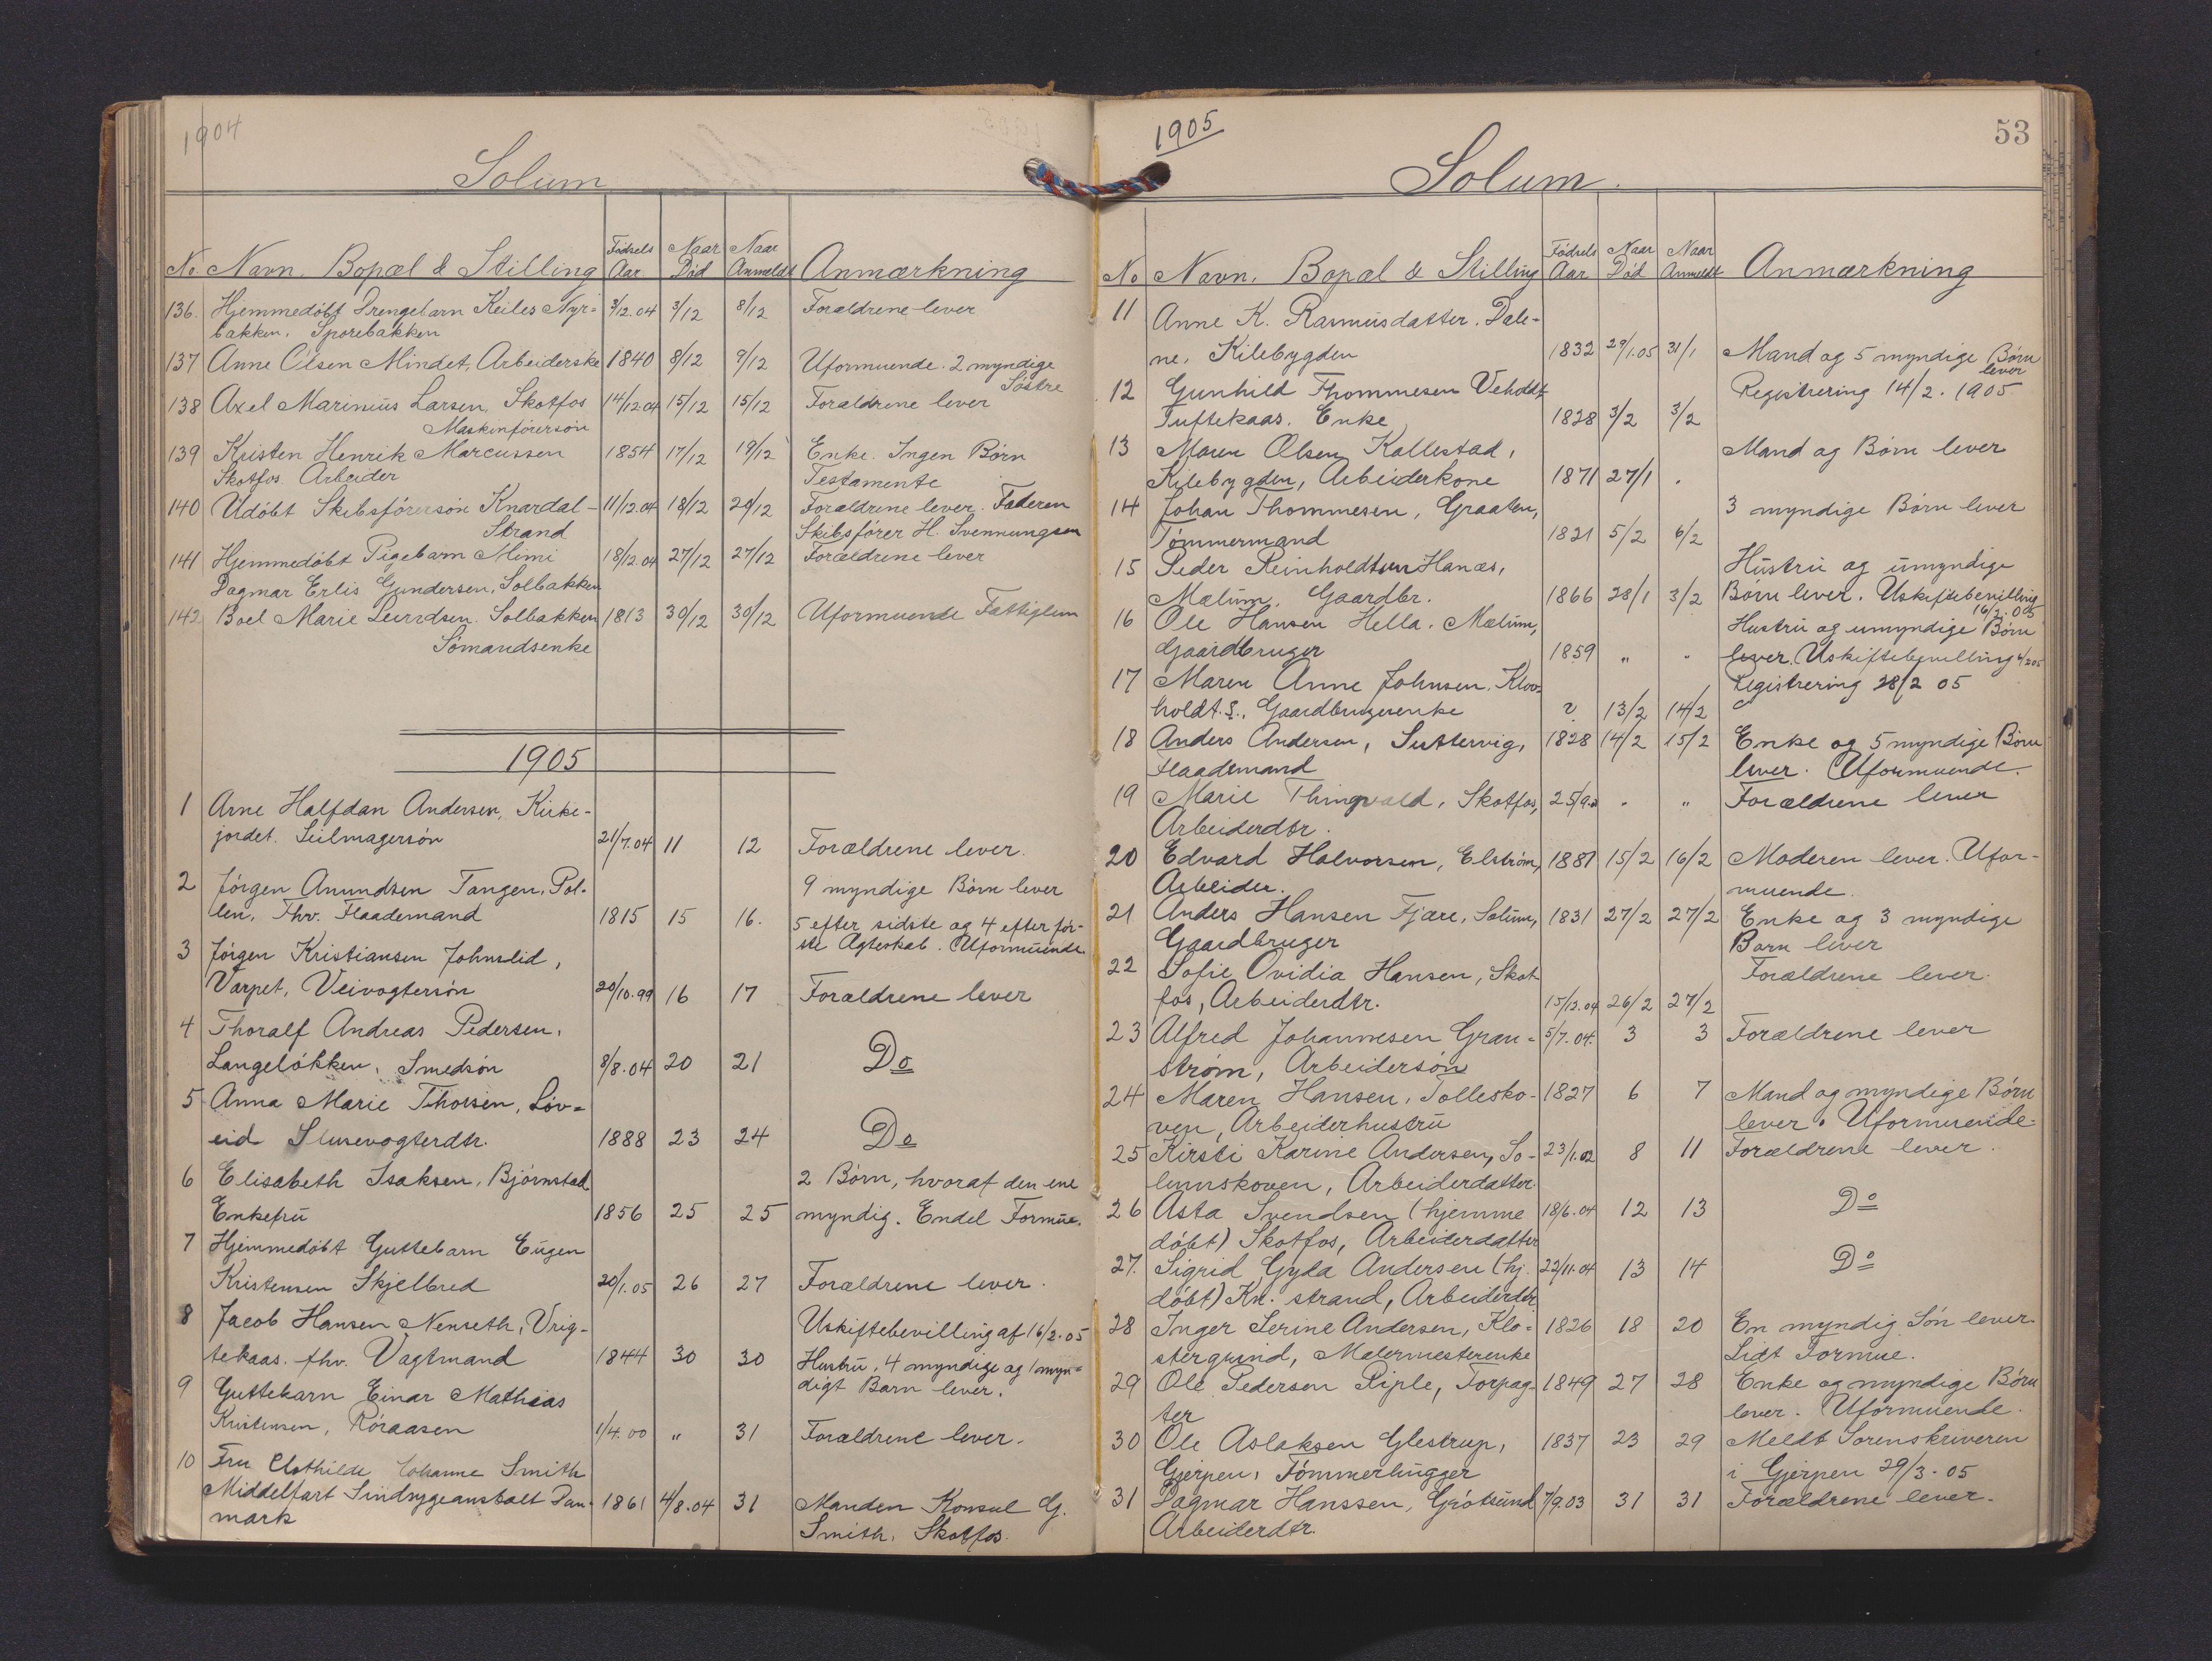 1904
Solum
No. Navn. Bopæl & Stilling Fødsels Aar Naar Død Naar Anmeldt Anmærkning
136. Hjemmedöbt Drengebarn Keiles Nyr= 3/12.04 3/12 8/12 Forældrene lever
bakken. Sporebakken
137 Anne Olsen Mindet, Arbeiderske 1840 8/12 9/12 Uformuende. 2 myndige
Söstre
138 Axel Marinius Larsen, Skotfos 14/12.04 15/12 15/12 Forældrene lever
Maskinförersön
139 Kristen Henrik Marcussen 1854 17/12 19/12 Enke. Ingen Børn
Skotfos. Arbeider Testamente
140 Udöbt Skibsförersön Knardal- 11/12.04 18/12 20/12 Forældrene lever. Faderen
Strand Skibsfører H. Svennungsen
141 Hjemmedöbt Pigebarn Mimi 18/12.04 27/12 27/12 Forældrene lever
Dagmar Erlis Gundersen, Solbakken
142 Boel Marie Solbakken 1813 30/12 30/12 Uformuende Fattiglem
Sömandsenke
1905
1 Arne Halfdan Andersen, Kirke-
jordet. Seilmagersön 21/7.04 11 12 Forældrene lever.
2 Jörgen Anundsen Tangen, Pol- 9 myndige Börn lever
len, Thv. Flaademand 1815 15 16. 5 efter sidste og 4 efter för-
ste Ægteskab. Uformuende
3 Jörgen Kristiansen Johnslid,
Varpet, Veivogtersön 20/10.99 16 17 Forældrene lever
4 Thoralf Andreas Pedersen,
Langelökken, Smedsön 8/8.04 20 21 Do
5 Anna Marie Thorsen, Löv=
eid Slusevogterdtr. 1888 23 24 Do
6 Elisabeth Isaksen, Björnstad 2 Börn, hvoraf den ene
Enkefru 1856 25 25 myndig. Endel Formue.
7 Hjemmedöbt Guttebarn Eugen
Kristensen Skjelbred 20/1.05 26 27 Forældrene lever.
8 Jacob Hansen Nenseth, Vrig- Uskiftebevilling af 16/2.05
tekaas. fhv. Vagtmand 1844 30 30 Hustru, 4 myndige og 1 myn=
digt Barn lever.
9 Guttebarn Einar Mathias
Kristensen, Röraasen 1/4.00 " 31 Forældrene lever.
10 Fru Clothilde Johanne Smith
Middelfart Sindsygeanstalt Dan- 1861 4/8.04 31 Manden Konsul G.
mark Smith, Skotfos.
1905
53
Solum.
No Navn, Bopæl & Stilling Fødsels Aar Naar Død Naar Anmeldt Anmærkning
11 Anne K. Rasmusdatter. Dale-
ne, Kilebygden 1832 29/1.05 31/1 Mand og 5 myndige Börn
lever
12 Gunhild Thommesen Veholdt Registrering 14/2. 1905.
Tuftekaas. Enke 1828 3/2 3/2
13 Maren Olsen Kallestad, Mand og Börn lever
Kilebygden, Arbeiderkone 1871 27/1 .
14 Johan Thommesen, Graaten, 3 myndige Börn lever
Tömmermand 1821 5/2 6/2
15 Peder Reinholdtsen Hanæs, Hustru og umyndige
Mælum, Gaardbr. 1866 28/1 3/2 Börn lever. Uskiftebevilling
16/2.05
16 Ole Hansen Hella. Mælum, Hustru og umyndige Börn
Gaardbruger 1859 " " lever. Uskiftebevilling 4/2 05
17 Maren Anne Johnsen. Klov= Registrering 28/2 05
holdt. S., Gaardbrugerenke ? 13/2 14/2
18 Anders Andersen, Suttervig, 1828 14/2 15/2 Enke og 5 myndige Börn
Flaademand lever. Uformuende.
19 Marie Thingvald, Skotfos, " " Forældrene lever
Arbeiderdtr.
20 Edvard Halvorsen, Elström, 1881 15/2 16/2 Moderen lever. Ufor-
Arbeider. muende.
21 Anders Hansen Fjære, Solum, 1831 27/2 27/2 Enke og 3 myndige
Gaardbruger Barn lever
22 Sofie Ovidia Hansen, Skot Forældrene lever.
fos, Arbeiderdtr. 15/12.04 26/2 27/2
23 Alfred Johannesen Grau= 5/7.04. 3 3 Forældrene lever
ström, Arbeidersön
24 Maren Hansen, Tollesko- 1827 6 7 Mand og myndige Börn
ven, Arbeiderhustru lever. Uformuende.
25 Kirsti Karine Andersen, So- 23/1.02 8 11 Forældrene lever.
lumskoven, Arbeiderdatter.
26 Asta Svendsen (hjemme 18/6.04 12 13 Do
döbt) Skotfos, Arbeiderdatter
27. Sigrid Gyda Andersen (hj. 22/11.04 13 14 Do
döbt) Kn. strand, Arbeiderdtr.
28 Inger Serine Andersen, Klo- 1826 18 20 En myndig Sön lever.
stergrund, Malermesterenke Lidt Formue.
29 Ole Pedersen Riple, Forpag- 1849 27 28 Enke og myndige Börn
ter lever. Uformuende.
30 Ole Aslaksen Glestrup, 1837 23 29 Meldt Sorenskriveren
Gjerpen, Tömmerhugger i Gjerpen 29/3-05
31 Dagmar Hanssen, Grötsund 7/9.03 31 31 Forældrene lever.
Arbeiderdtr.